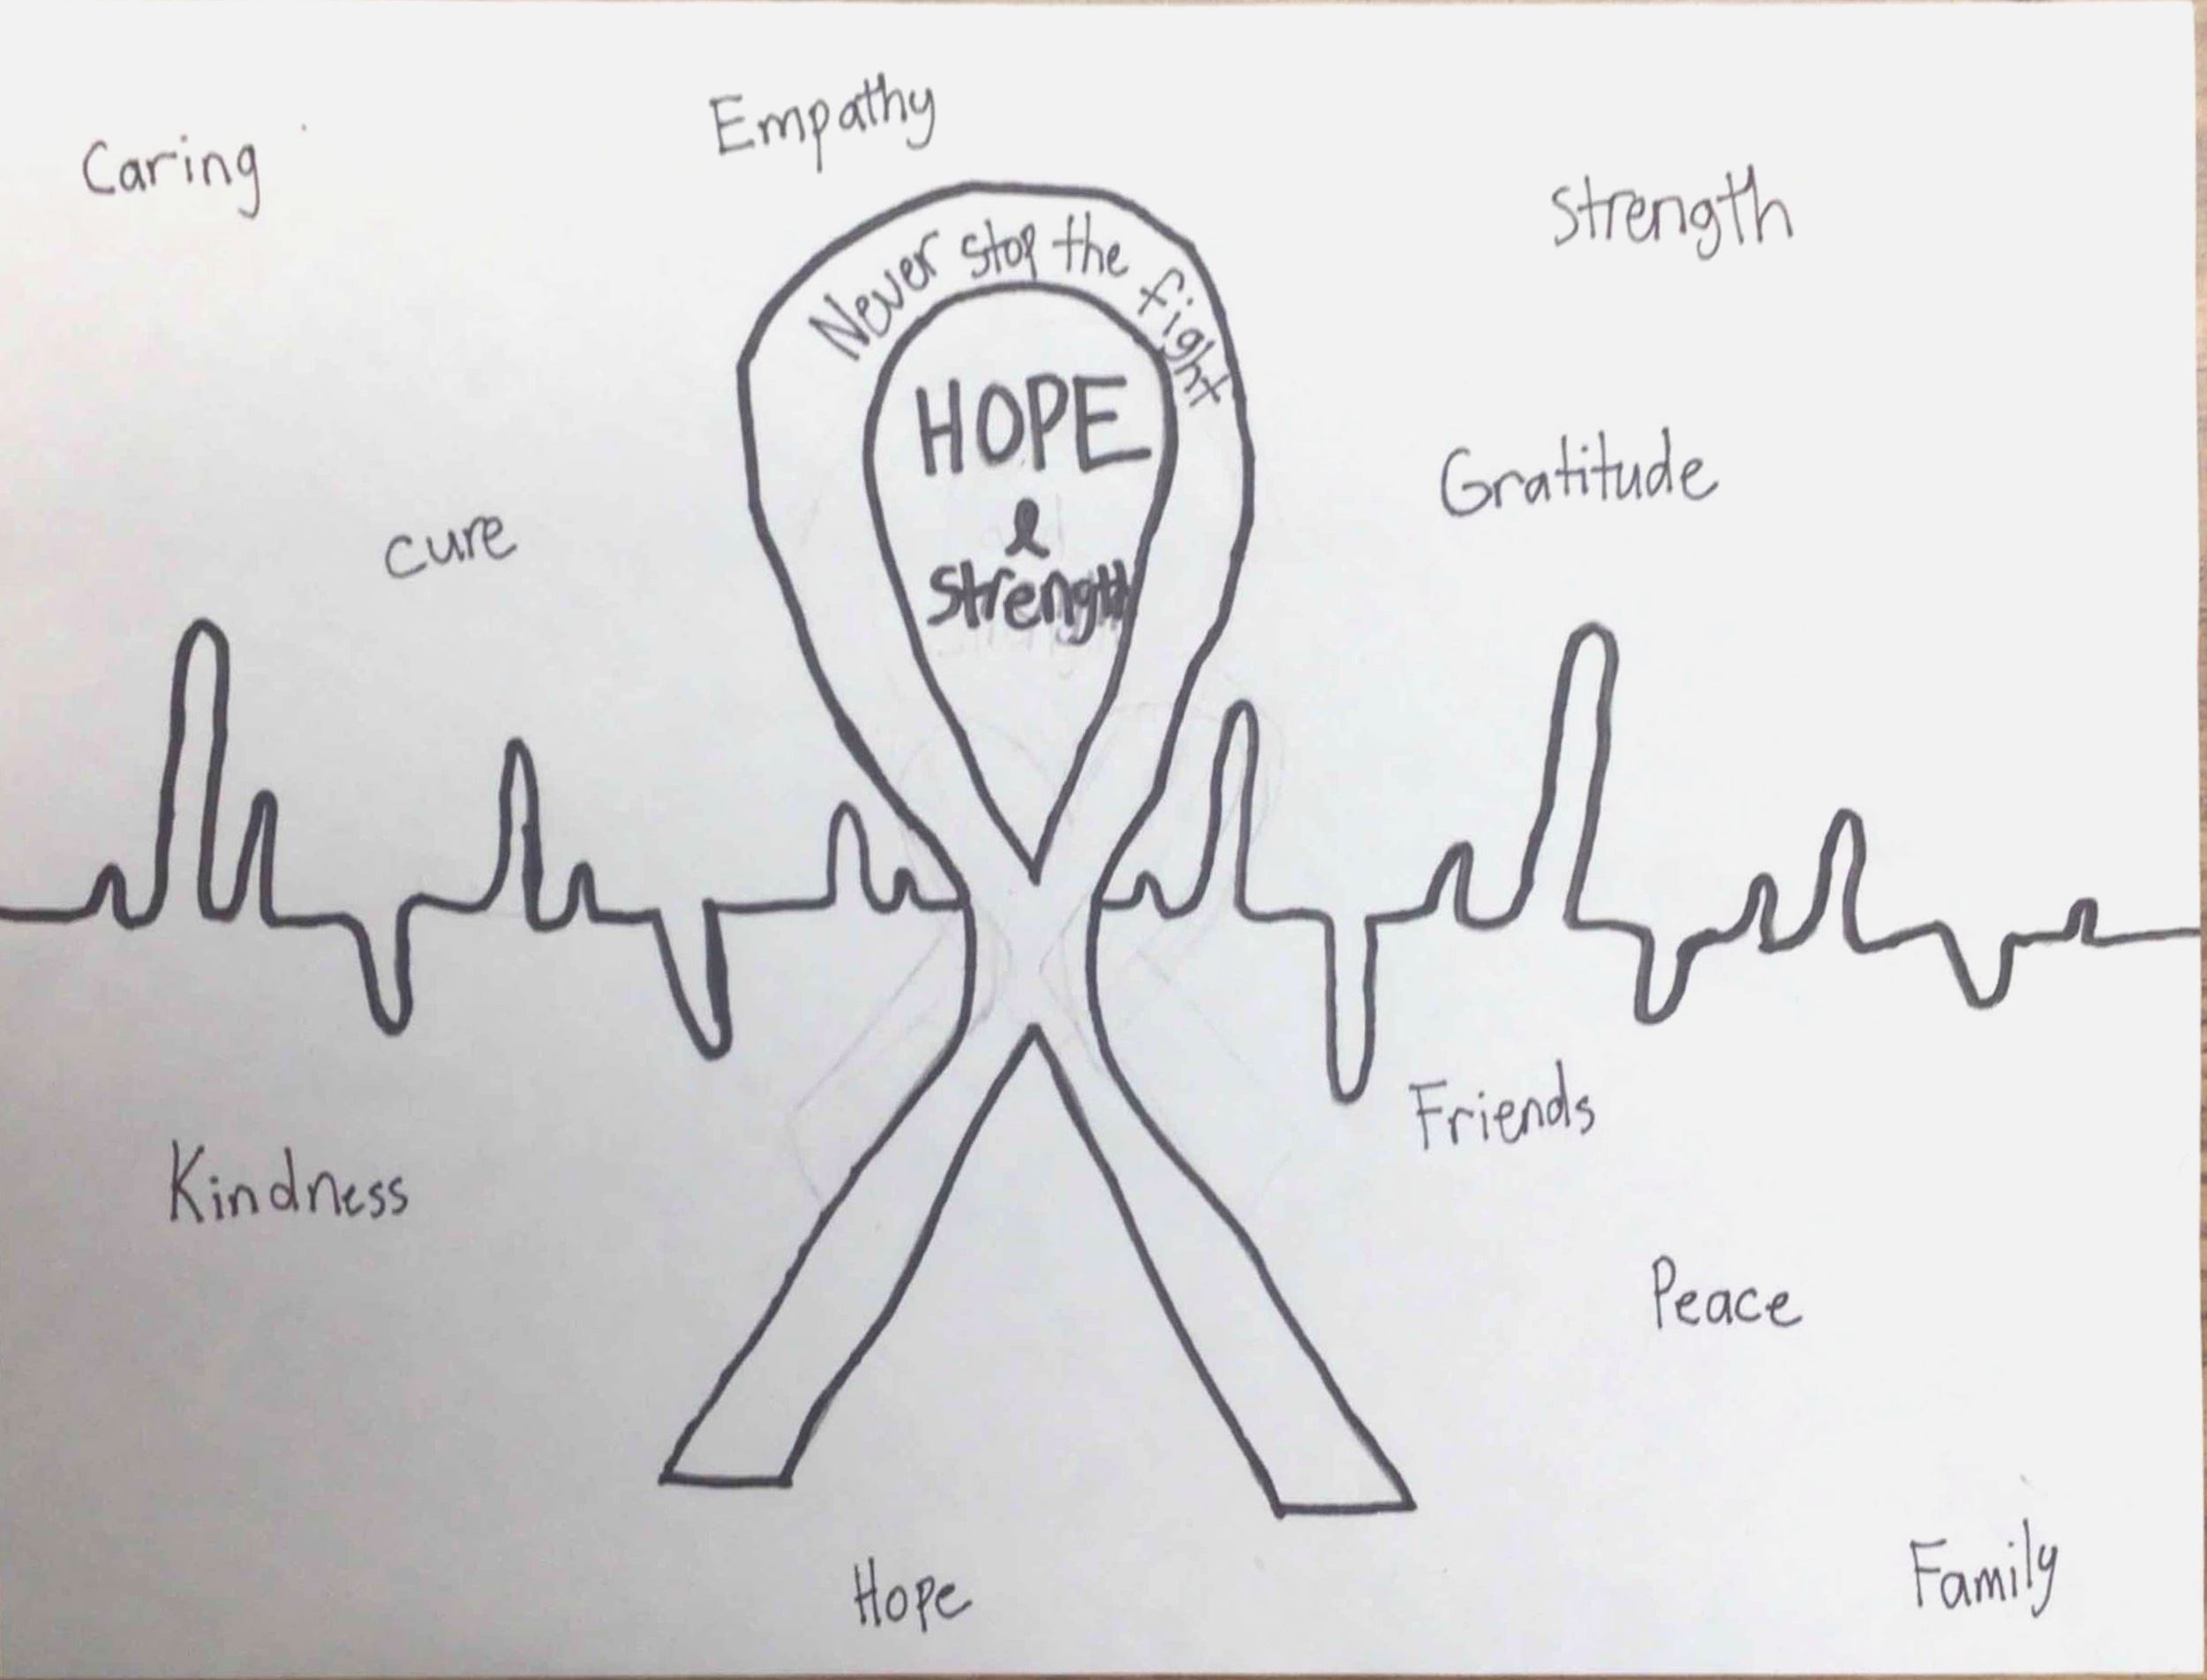 Caring
Empathy
Strength
Never stop the fight
HOPE
&
Strength
Gratitude
cure
Friends
Kindness
Peace
Hope
Family